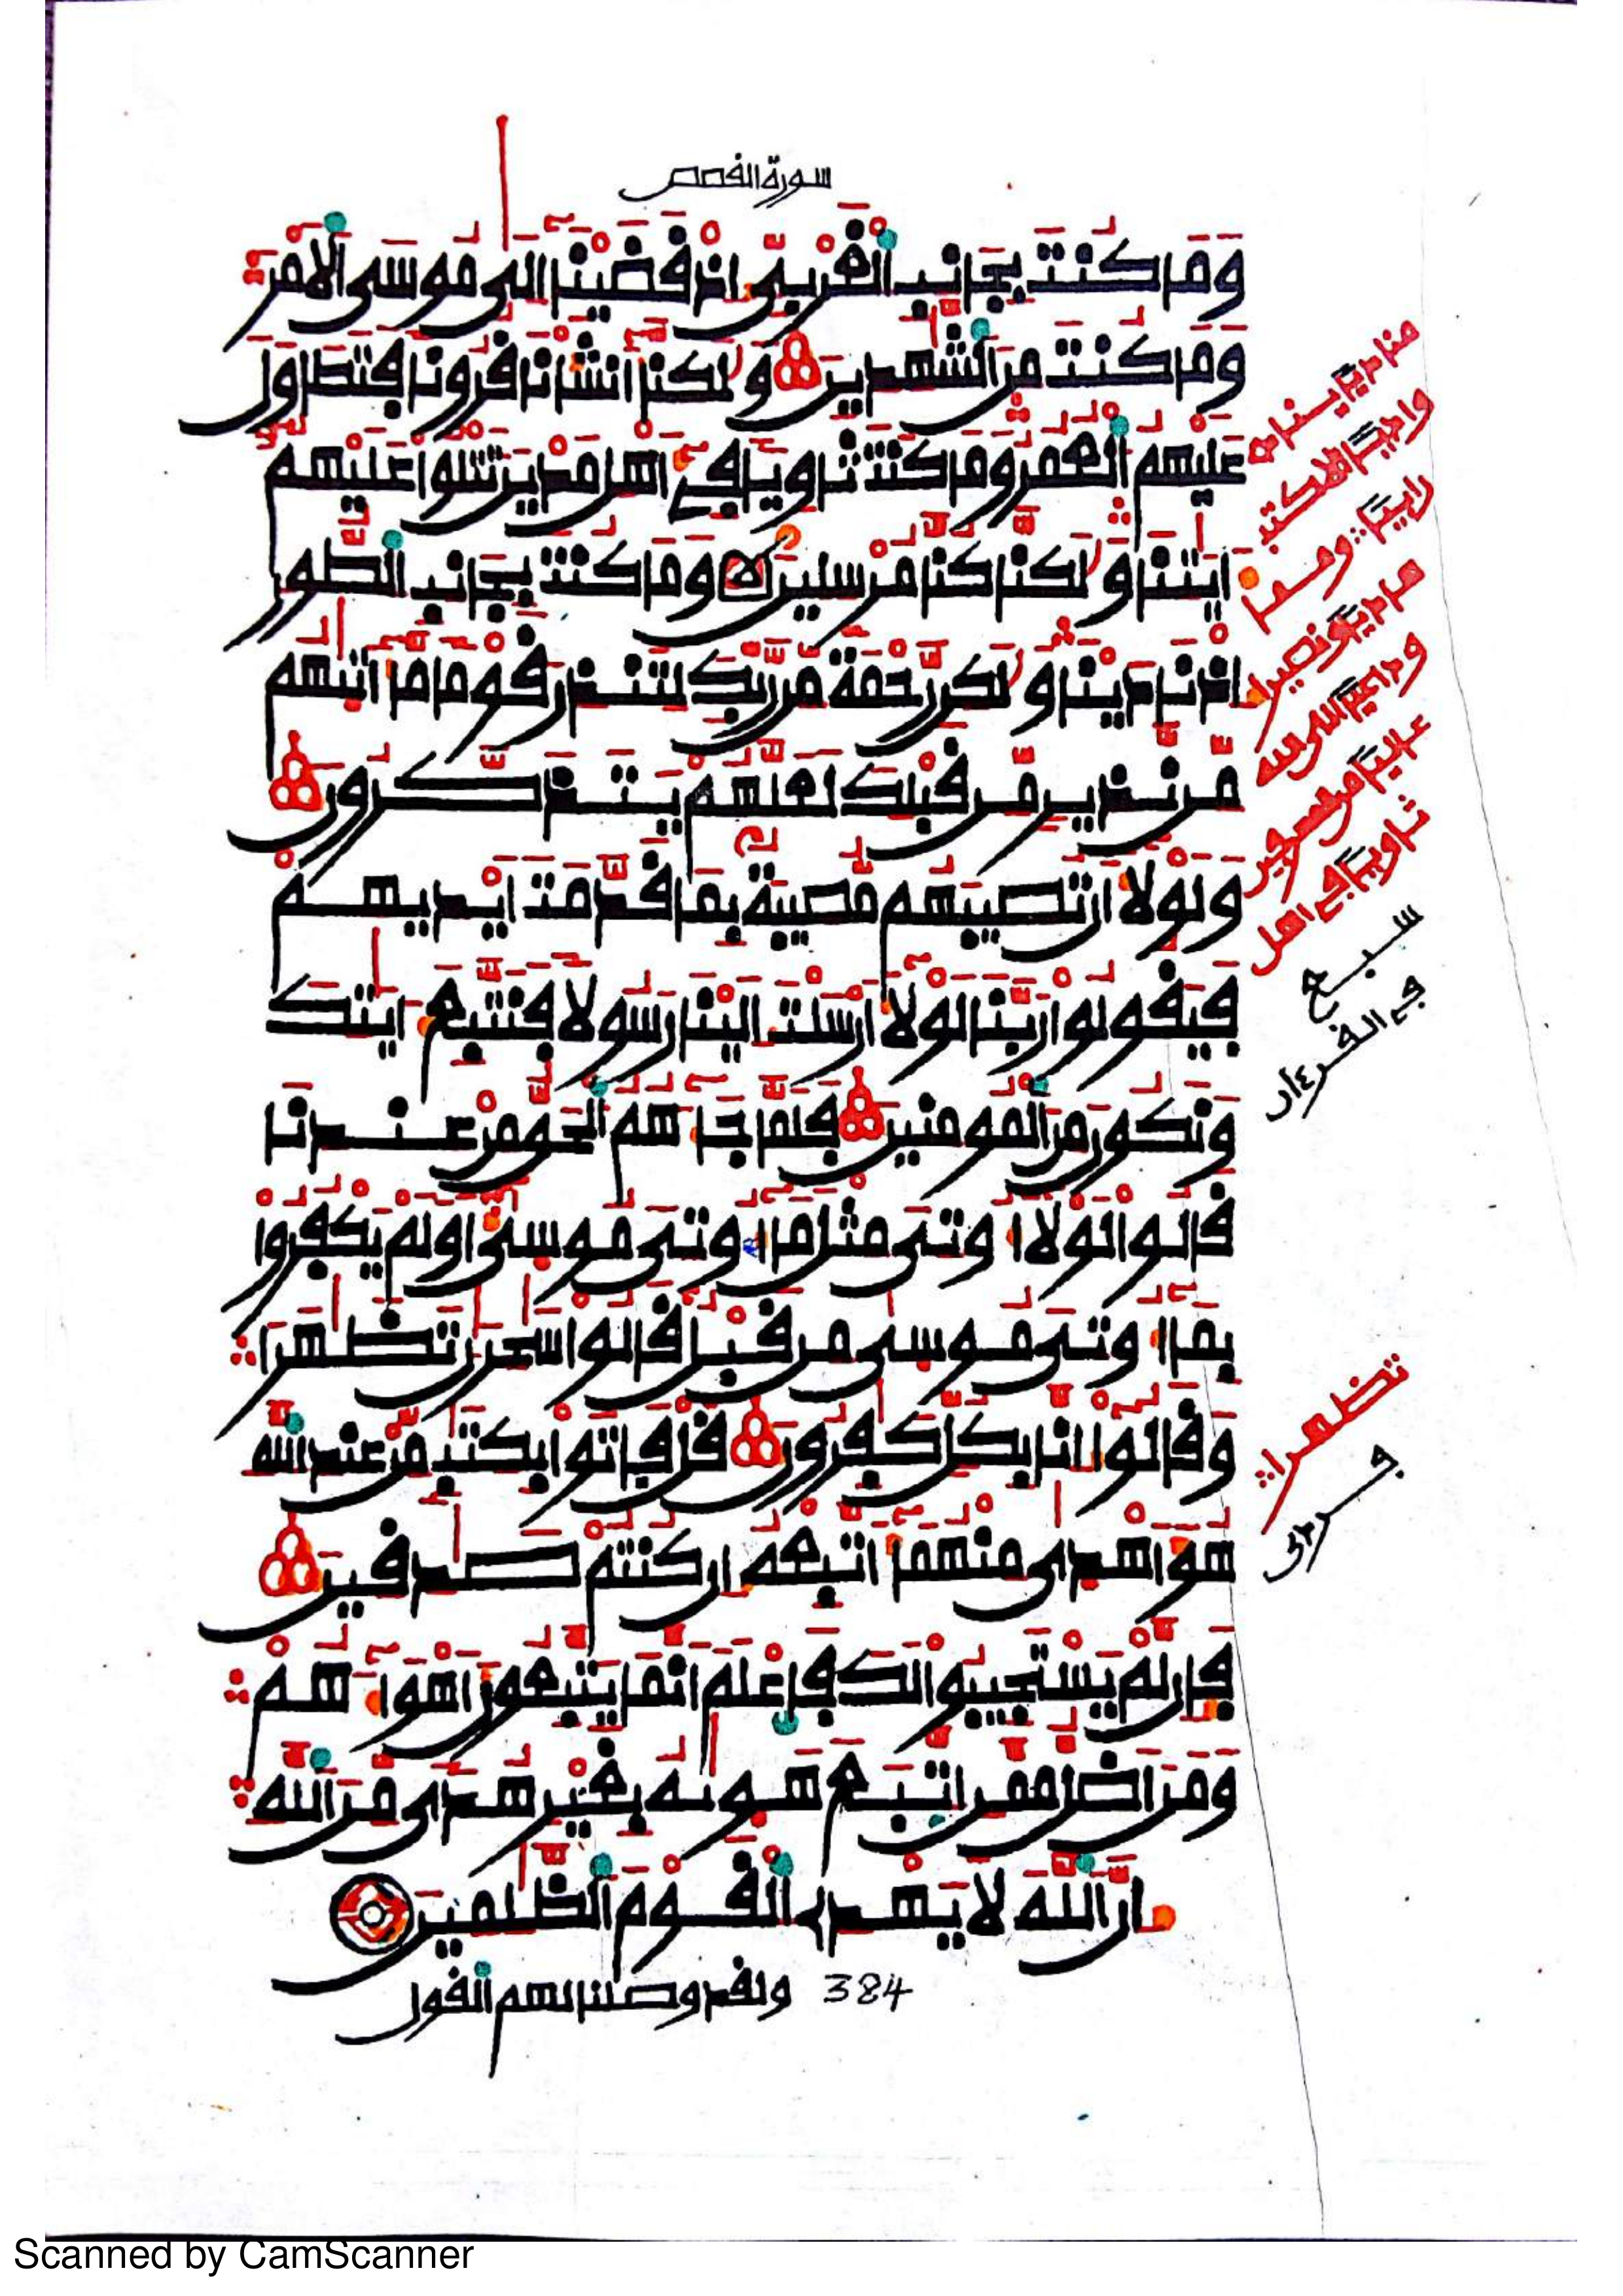 سورة القصص
وَمَا كُنتَ بِجَانِبِ الْغَرْبِيِّ إِذْ قَضَيْنَا إِلَى مُوسَى الْأَمْرَ
وَمَا كُنتَ مِنَ الشَّهِدِينَ وَلَكِنَّا أَنشَأْنَا قُرُونًا فَتَطَاوَلَ
عَلَيْهِمُ الْعُمُرُ وَمَا كُنتَ ثَاوِيًا فِي أَهْلِ مَدْيَنَ تَتْلُوا عَلَيْهِمُ
ءَايَتِنَا وَلَكِنَّا كُنَّا مُرْسِلِينَ وَمَا كُنتَ بِجَانِبِ الطُّورِ
إِذْ نَادَيْنَا وَلَكِن رَّحْمَةً مِّن رَّبِّكَ لِتُنذِرَ قَوْمًا مَّا أَتَيهُم
مِّن نَّذِيرٍ مِّن قَبْلِكَ لَعَلَّهُمْ يَتَذَكَّرُونَ
وَلَوْلَا أَن تُصِيبَهُم مُّصِيبَةٌ بِمَا قَدَّمَتْ أَيْدِيهِمْ
فَيَقُولُوا رَبَّنَا لَوْلَا أَرْسَلْتَ إِلَيْنَا رَسُولًا فَنَتَّبِعَ ءَايَتِكَ
وَنَكُونَ مِنَ الْمُومِنِينَ فَلَمَّا جَاءَهُمُ الْحَقُّ مِنْ عِندِنَا
قَالُوا لَوْلَا أُوتِيَ مِثْلَ مَا أُوتِيَ مُوسَى أَوَلَمْ يَكْفُرُوا
بِمَا أُوتِيَ مُوسَى مِن قَبْلُ قَالُوا سَحِرَانِ تَظَهَرَا
وَقَالُوا إِنَّا بِكُلٍّ كَفِرُونَ قُلْ فَاتُوا بِكِتَبٍ مِّنْ عِندِ اللَّهِ
هُوَ أَهْدَى مِنْهُمَا أَتَّبِعْهُ إِن كُنتُمْ صَدِقِينَ
فَإِن لَّمْ يَسْتَجِيبُوا لَكَ فَاعْلَمْ أَنَّمَا يَتَّبِعُونَ أَهْوَاءَهُمْ
وَمَنْ أَضَلُّ مِمَّنِ اتَّبَعَ هَوَيهُ بِغَيْرِ هُدًى مِّنَ اللَّهِ
إِنَّ اللَّهَ لَا يَهْدِي الْقَوْمَ الظَّلِمِينَ
384 ولقد وصلنا لهم القول
ثاويا في أهل
سبع
في القرءان
تظهرا
Scanned by CamScanner